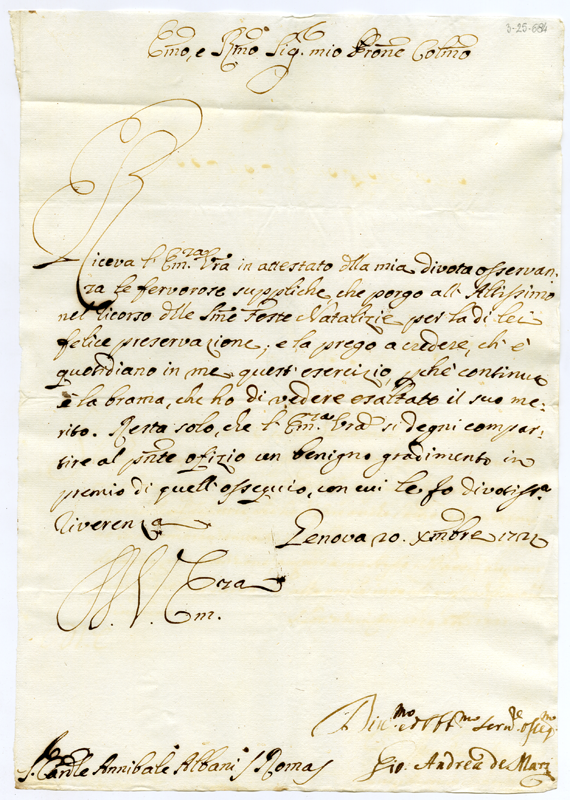 3-25-684
Em̃o, e Rm̃o Sig.r mio Pron̄e Colm̃o
Riceva l'Em.za Vr̃a in attestato dlla mia divota osservan-
za le fervorose suppliche, che porgo all'Altissimo
nel ricorso dlle Sm̃e Feste Natalizie per la di lei
felice preservazione; e la prego a credere, ch'è
quotidiano in me quest'esercizio, p̃chè continua
è la brama, che ho di vedere esaltato il suo me-
rito. Resta solo, che l'Em.za Vr̃a si degni compar-
tire al pñte ofizio un benigno gradimento in
premio di quell'ossequio, con cui le fo divotiss.a
riverenza
Genova 20. Xmbre 1721
V. Em.za
Div.mo ed Obb.mo Serv.re osseq.mo
S. Cardle Annibale Albani / Roma /
Gio. Andrea de Mari